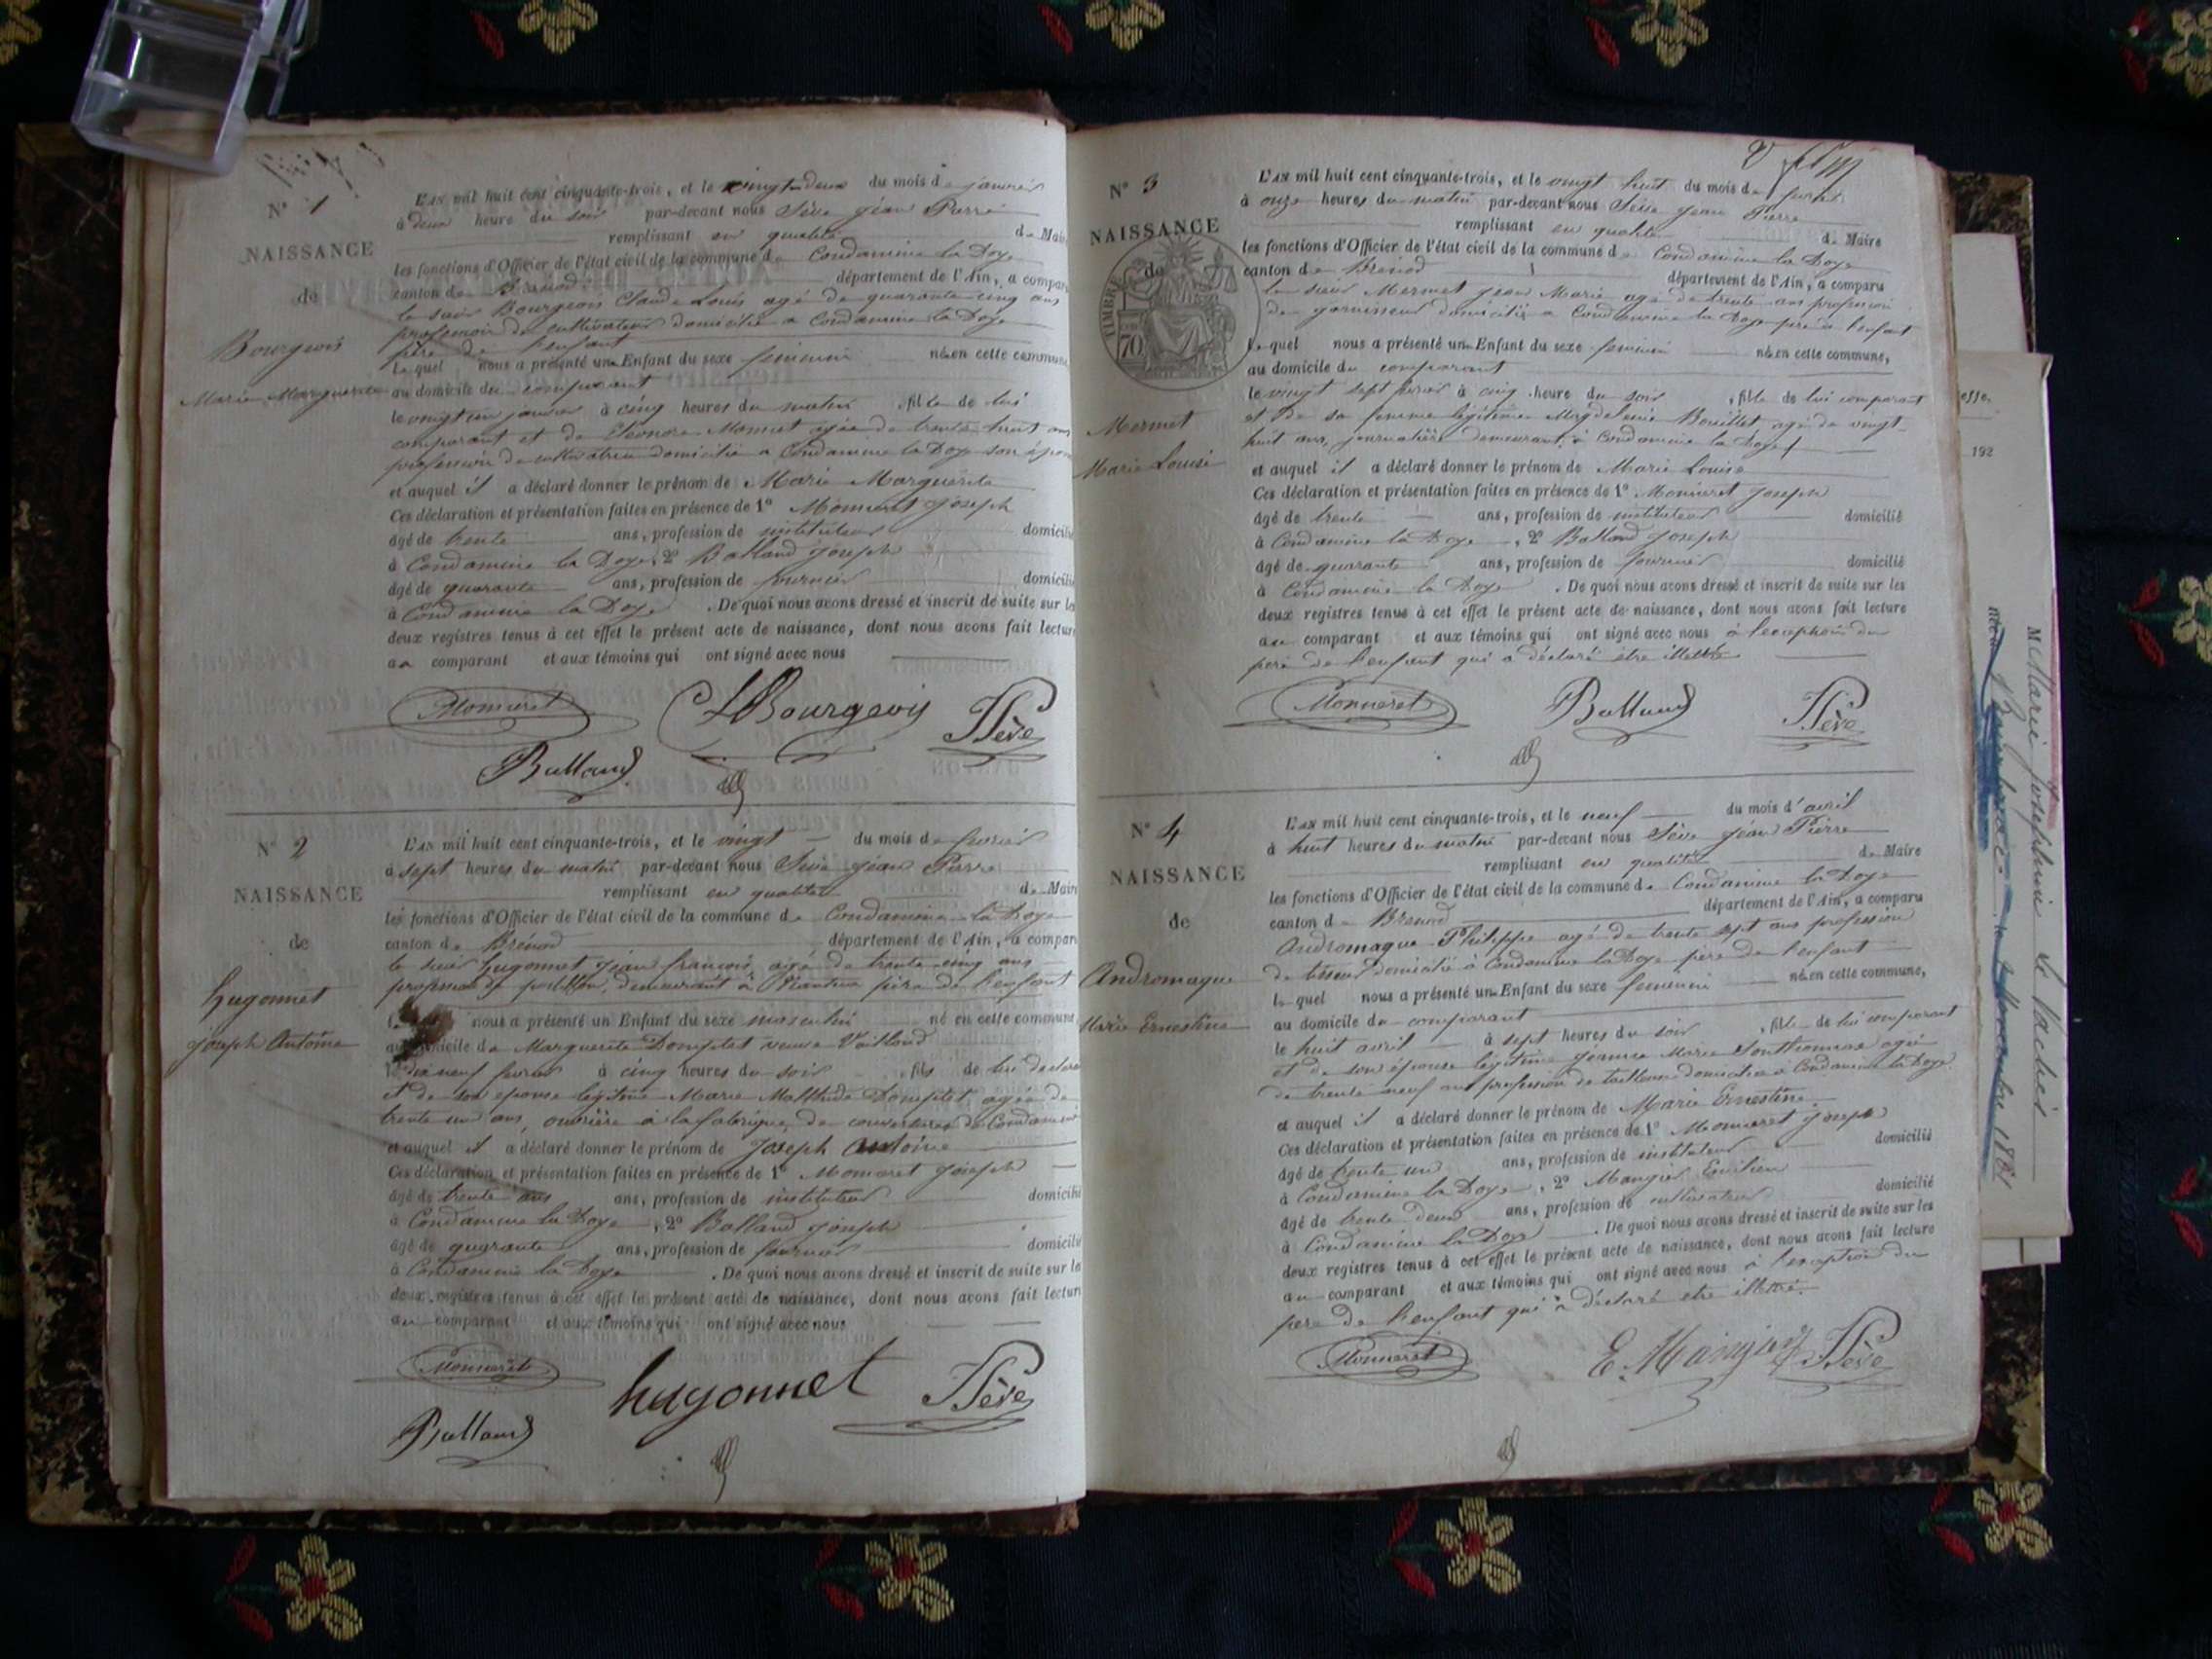 N° 1
NAISSANCE
de
Bourgeois
Marie Marguerite
L'AN mil huit cent cinquante-trois, et le vingt-deux du mois de janvier
à deux heure du soir par-devant nous Sève Jean Pierre
remplissant en qualité de Maire
les fonctions d'Officier de l'état civil de la commune de Condamine la Doye
canton de Brénod département de l'Ain, a compar
le sieur Bourgeois Claude Louis agé de quarante cinq ans
profession de cultivateur domicilié a Condamine la Doye
père de l'enfant
Lequel nous a présenté un Enfant du sexe feminin né en cette commune
au domicile du comparant
le vingt un janvier à cinq heures du matin , fille de lui
comparant et de Eléonore Monnet agée de trente huit ans
profession de cultivatrice domicilié a Condamine la Doye son épou
et auquel il a déclaré donner le prénom de Marie Marguerite
Ces déclaration et présentation faites en présence de 1° Monneret Joseph
âgé de trente ans, profession de instituteur domicilié
à Condamine la Doye, 2° Balland Joseph
âgé de quarante ans, profession de fournier domicilié
à Condamine la Doye . De quoi nous avons dressé et inscrit de suite sur les
deux registres tenus à cet effet le présent acte de naissance, dont nous avons fait lecture
au comparant et aux témoins qui ont signé avec nous
Monneret CLBourgeois JPSève
Balland
N° 2
NAISSANCE
de
hugonnet
Joseph Antoine
L'AN mil huit cent cinquante-trois, et le vingt du mois de fevrier
à sept heures du matin par-devant nous Sève Jean Pierre
remplissant en qualité de Maire
les fonctions d'Officier de l'état civil de la commune de Condamine la Doye
canton de Brénod département de l'Ain, a compar
le sieur hugonnet Jean françois, agé de trente cinq ans
profession de postillon, demeurant à Nantua père de l'enfant
nous a présenté un Enfant du sexe masculin né en cette commune
au domicile de Marguerite Domptet veuve Vailland
le dix neuf fevrier à cinq heures du soir , fils de lui declara
et de son epouse legitime Marie Domptet agée de
trente un ans, ouvrière à la fabrique de couvertures de Condamine
et auquel il a déclaré donner le prénom de Joseph Antoine
Ces déclaration et présentation faites en présence de 1° Monneret Joseph
âgé de trente ans ans, profession de instituteur domicilié
à Condamine la Doye, 2° Balland Joseph
âgé de quarante ans, profession de fournier domicilié
à Condamine la Doye . De quoi nous avons dressé et inscrit de suite sur les
deux registres tenus à cet effet le présent acte de naissance, dont nous avons fait lecture
au comparant et aux témoins qui ont signé avec nous
Monneret hugonnet JPSève
Balland
N° 3
NAISSANCE
de
TIMBRE
70
Mermet
Marie Louise
L'AN mil huit cent cinquante-trois, et le vingt huit du mois de fevrier
à onze heures du matin par-devant nous Sève Jean Pierre
remplissant en qualité de Maire
les fonctions d'Officier de l'état civil de la commune de Condamine la Doye
canton de Brénod département de l'Ain, a comparu
le sieur Mermet Jean Marie agé de trente ans profession
de garnisseur domicilié a Condamine la Doye père de l'enfant
Lequel nous a présenté un Enfant du sexe feminin né en cette commune,
au domicile du comparant
le vingt sept fevrier à cinq heure du soir , fille de lui comparant
et de sa femme légitime Magdeleine Bouillet, agé de vingt
huit ans, journalière demeurant à Condamine la Doye
et auquel il a déclaré donner le prénom de Marie Louise
Ces déclaration et présentation faites en présence de 1° Monneret Joseph
âgé de trente ans, profession de instituteur domicilié
à Condamine la Doye, 2° Balland Joseph
âgé de quarante ans, profession de fournier domicilié
à Condamine la Doye . De quoi nous avons dressé et inscrit de suite sur les
deux registres tenus à cet effet le présent acte de naissance, dont nous avons fait lecture
au comparant et aux témoins qui ont signé avec nous à l'exception du
père de l'enfant qui a déclaré être illettré
Monneret Balland JPSève
N° 4
NAISSANCE
de
Andromaque
Marie Ernestine
L'AN mil huit cent cinquante-trois, et le neuf du mois d'avril
à huit heures du matin par-devant nous Sève Jean Pierre
remplissant en qualité de Maire
les fonctions d'Officier de l'état civil de la commune de Condamine la Doye
canton de Brénod département de l'Ain, a comparu
Andromaque Philippe agé de trente sept ans profession
de tisseur domicilié à Condamine la Doye père de l'enfant
lequel nous a présenté un Enfant du sexe feminin né en cette commune,
au domicile du comparant
le huit avril à sept heures du soir , fille de lui comparant
et de son épouse légitime Jeanne Marie agée
de trente neuf ans profession de tailleuse domiciliée a Condamine la Doye
et auquel il a déclaré donner le prénom de Marie Ernestine
Ces déclaration et présentation faites en présence de 1° Monneret Joseph
âgé de trente un ans, profession de instituteur domicilié
à Condamine la Doye, 2° Mangier Emilien
âgé de trente deux ans, profession de cultivateur domicilié
à Condamine la Doye . De quoi nous avons dressé et inscrit de suite sur les
deux registres tenus à cet effet le présent acte de naissance, dont nous avons fait lecture
au comparant et aux témoins qui ont signé avec nous à l'exception du
père de l'enfant qui a déclaré etre illettré.
Monneret E. Mangier JPSève
esse.
192
Marie Joséphine
1881